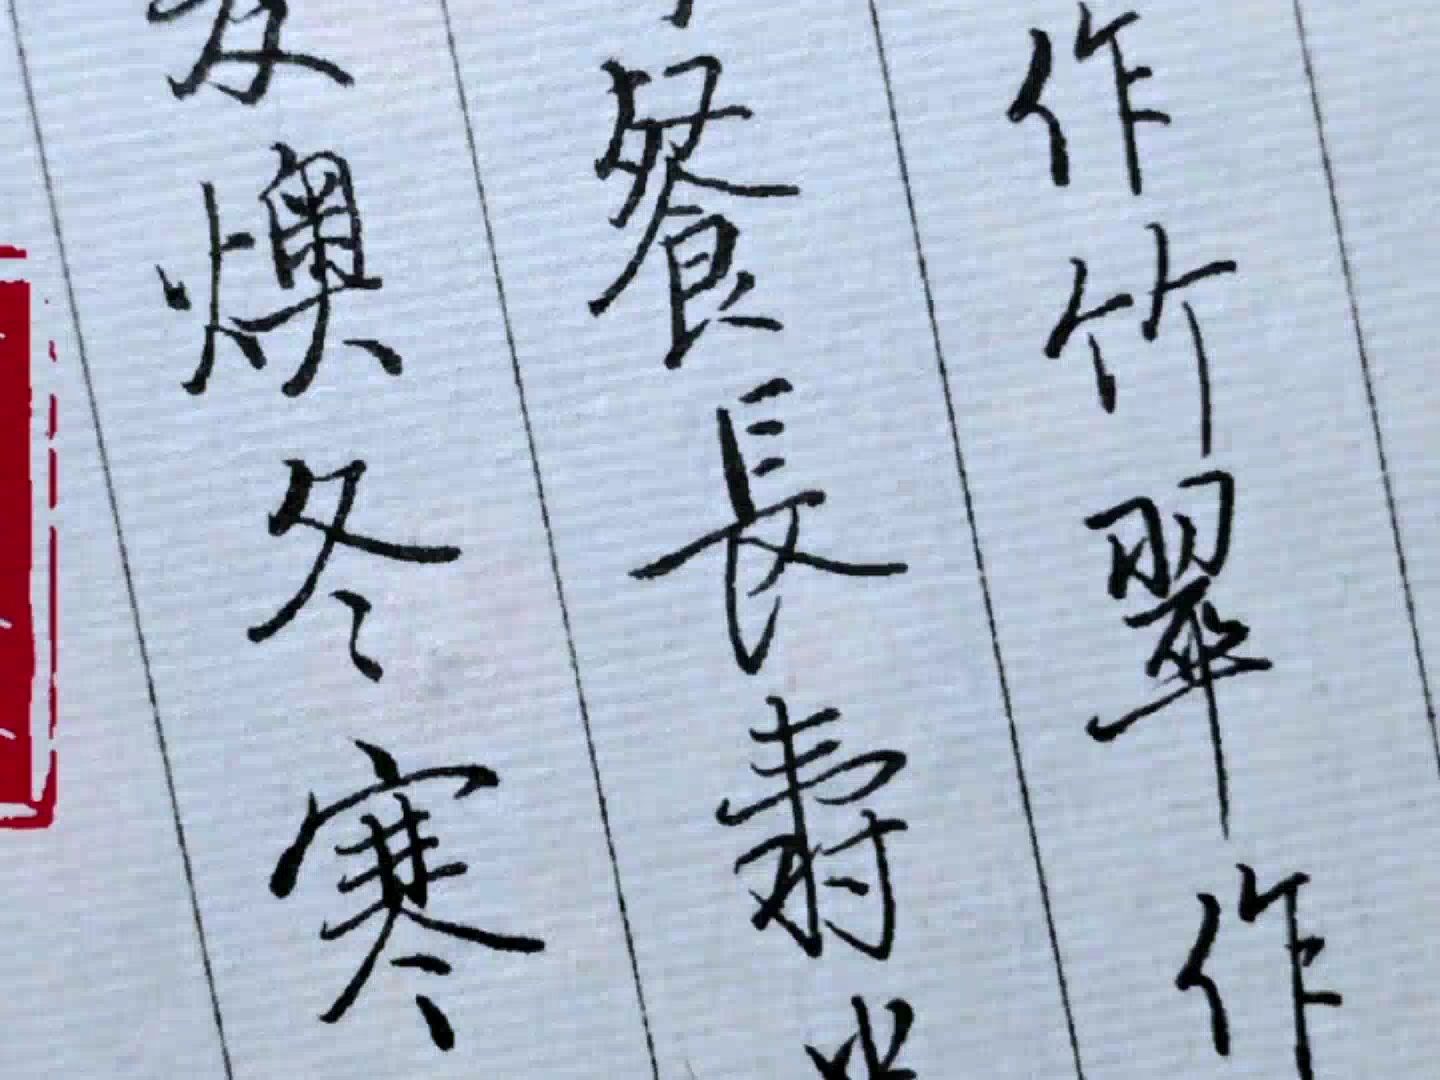 作竹翠作
餐長壽
燠冬寒